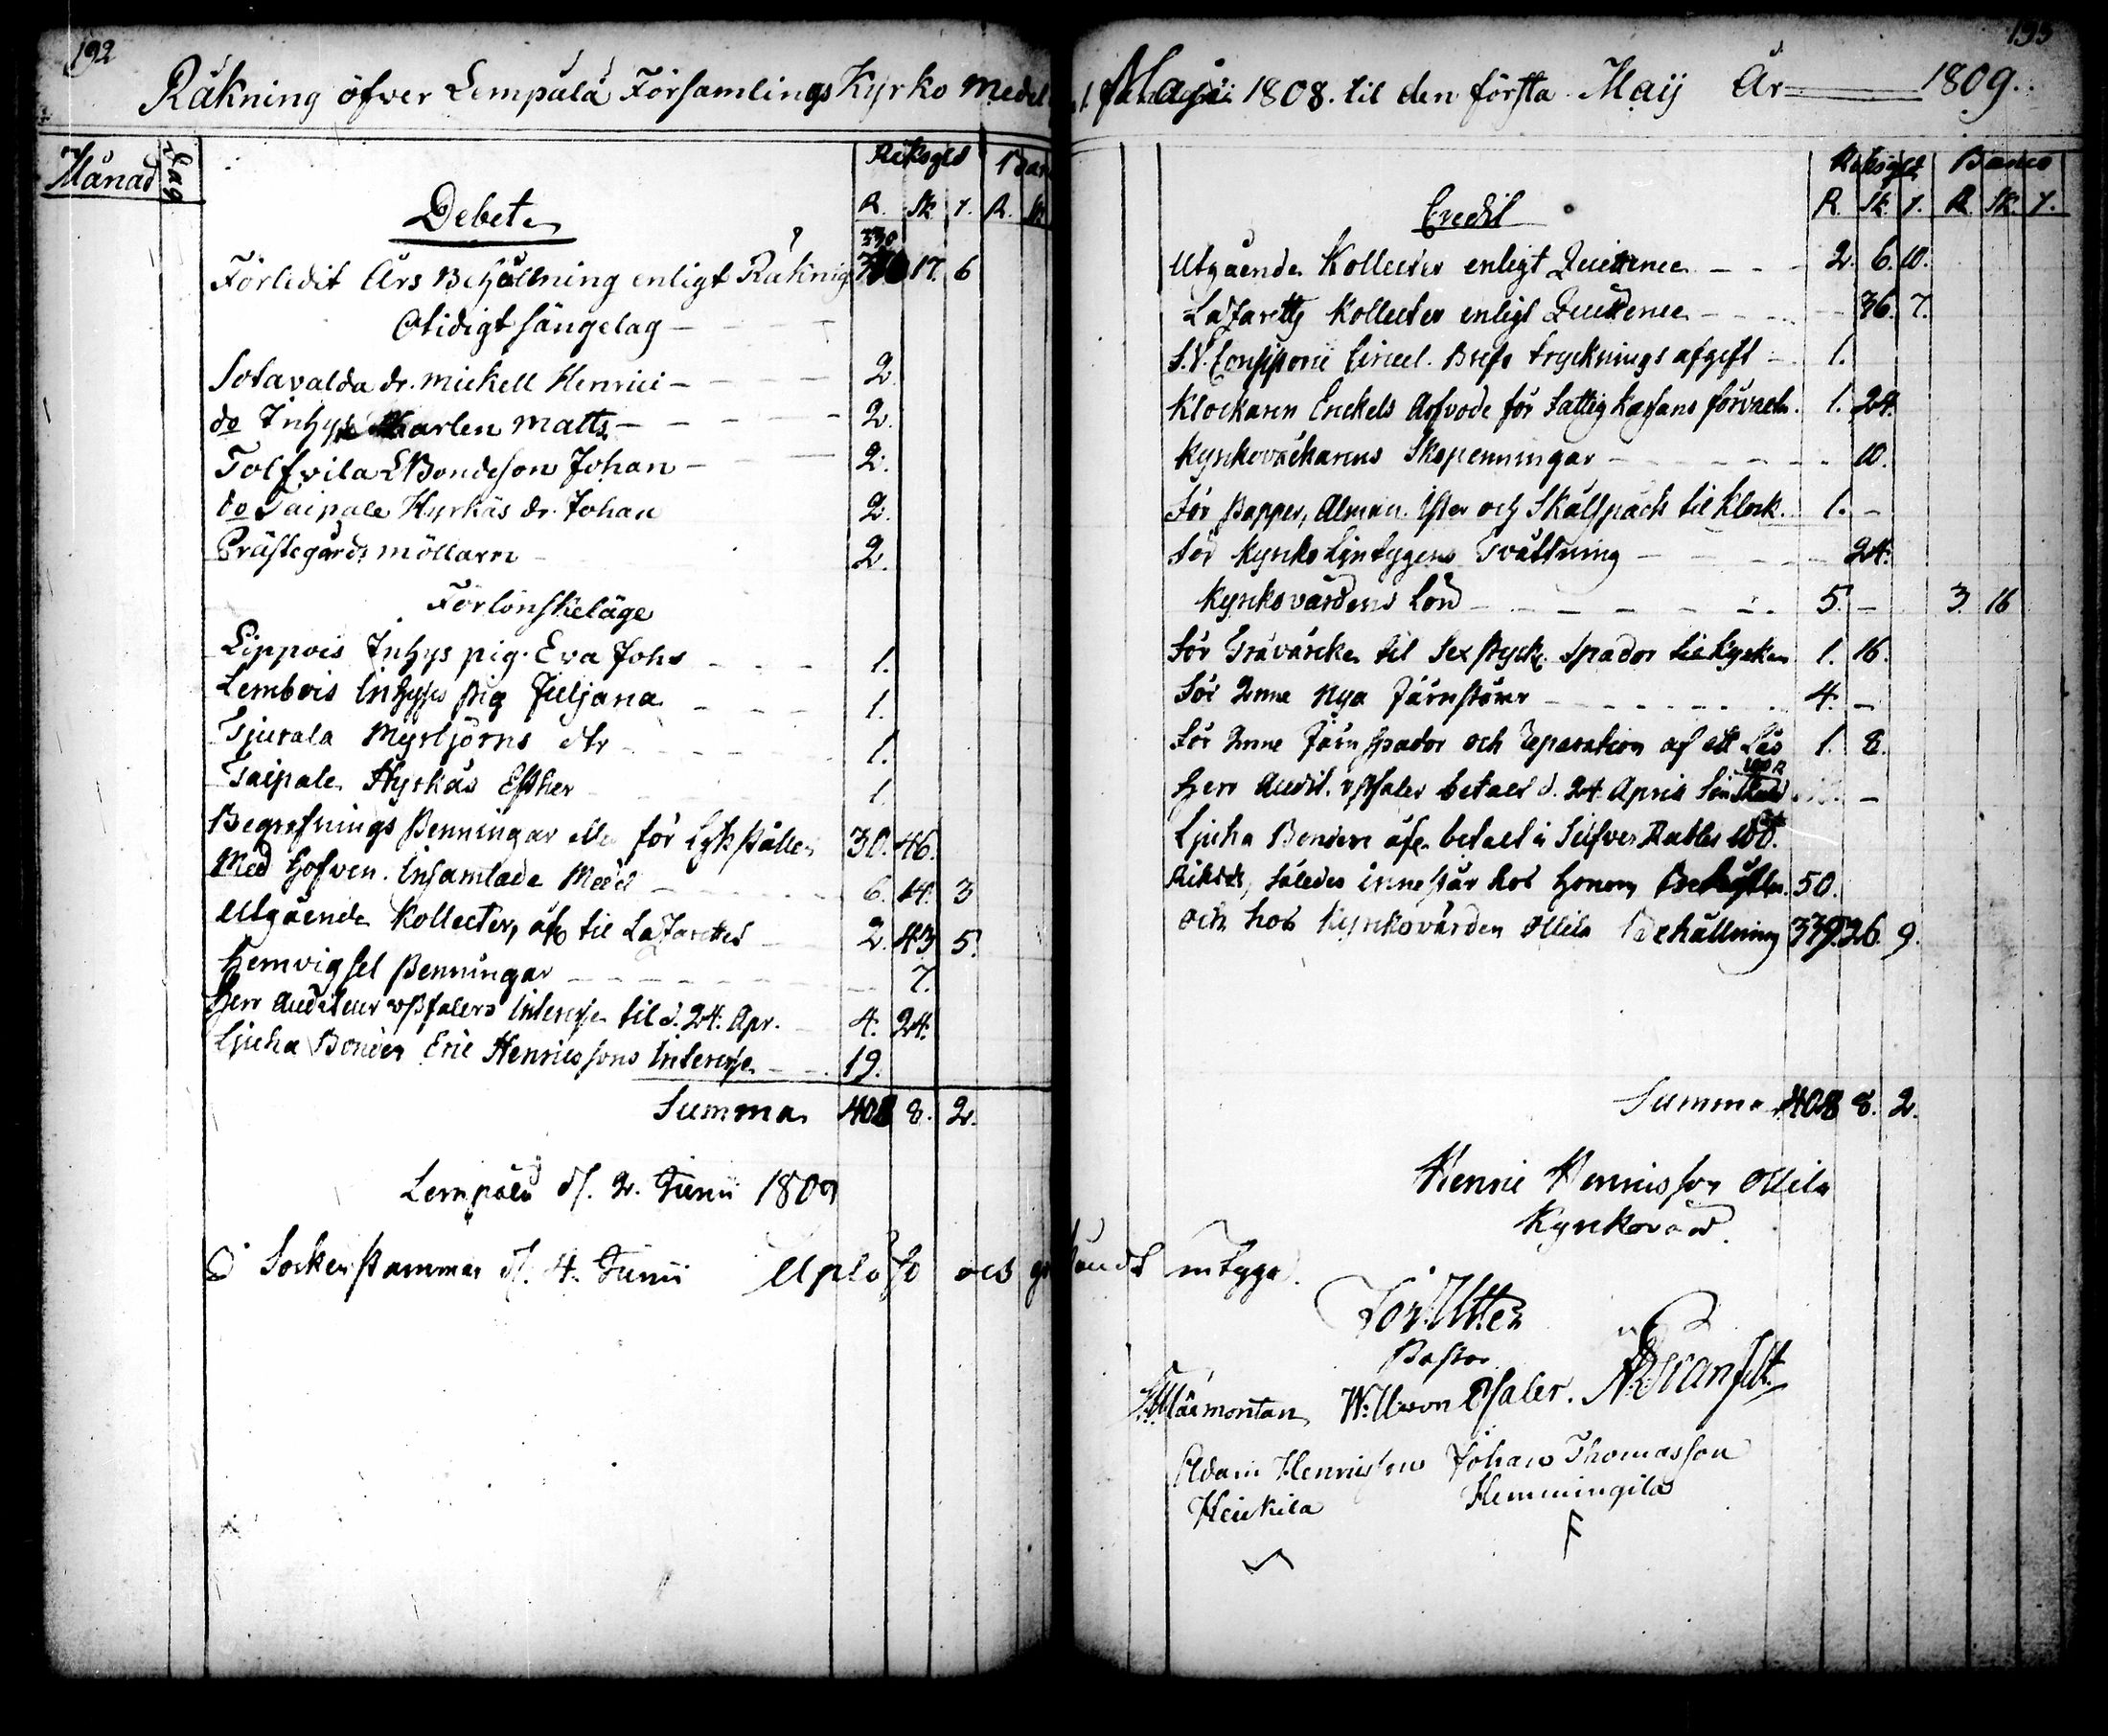 192
Räkning öfver Lempälä Församlings Kyrko Medel
Månad
Dag
Riksgld
Ban
R. sk r. R. sk
Debet
330
Förledit Års Behållning enligt Räknig 17. 6
Otidigt sängelag
Sotavalda dr. Mickell Henrici 2.
do Inhys Karlen Matts 2.
Tolfvila Bondeson Johan 2.
do Taipale Hyrkäs dr. Johan 2.
Prästegårds möllarn 2.
Förlönskeläge
Lippois Inhys pig. Eva Johs 1.
Lembois Inhyses pig Juljana 1.
Tjurala Myrbjörns dtr 1.
Taipale Hyrkäs Esther 1.
Begrafnings Penningar eller för Lijkställen 30. 46.
Med Hofven Insamlade Medel 6. 14. 3
Utgående Kollecter, äfv til Lazarettet 2. 43 5.
Hemvigsel Penningar 7.
Herr Auditeur v Pfalers Interesse til d. 24. Apr. 4. 24.
Ljuha Bonden Eric Henricssons Interesse 19.
Summa 408 8. 2.
Lempälä d. 2. Junii 1809
Sockenstamman d. 4. Junii Upläst och
193
1. Maji 1808. til den första Maij År 1809.
Riksgld Banco
R. sk. r. R. sk. r.
Credit
Utgående Kollecter enligt Quittence 2. 6. 10.
Lazaretts Kollecter enligt Quittence 36. 7.
Circul. Brefs trycknings afgift 1.
Klockaren Enckels Arfvode för Fattig Kassans förvalt. 1. 24.
Kyrkoväcktarens Skopenningar 10.
För Papper, Alman. Ister och Skållspäck til Klock. 1. -
För Kyrko Lintygens Tvättning 24.
Kyrkovärdens Lön 5. - 3. 16
För Trävärcke til Sex styck. Spador til Kyrkan 1. 16.
För 2nne Nya Järnstörar 4. -
För 2nne Järn Spador och Reparation af ett Lås 1. 8.
100 R
Herr Audit. v Pfaler betalt d. 24. April -
Ljuha Bonden äfv. betalt i Silfver Rubler 100.
Riksd., således innestår hos honom 50.
och hos Kyrkovärden Ollila Behållning 339. 26. 9.
Summa 408 8. 2.
Henric Henricsson Ollila
Kyrkovärd.
intyga.
Pastor
W: M: von Pfaler.
Adam Henricsson Johan Thomasson
Heikkila Hemmingilä